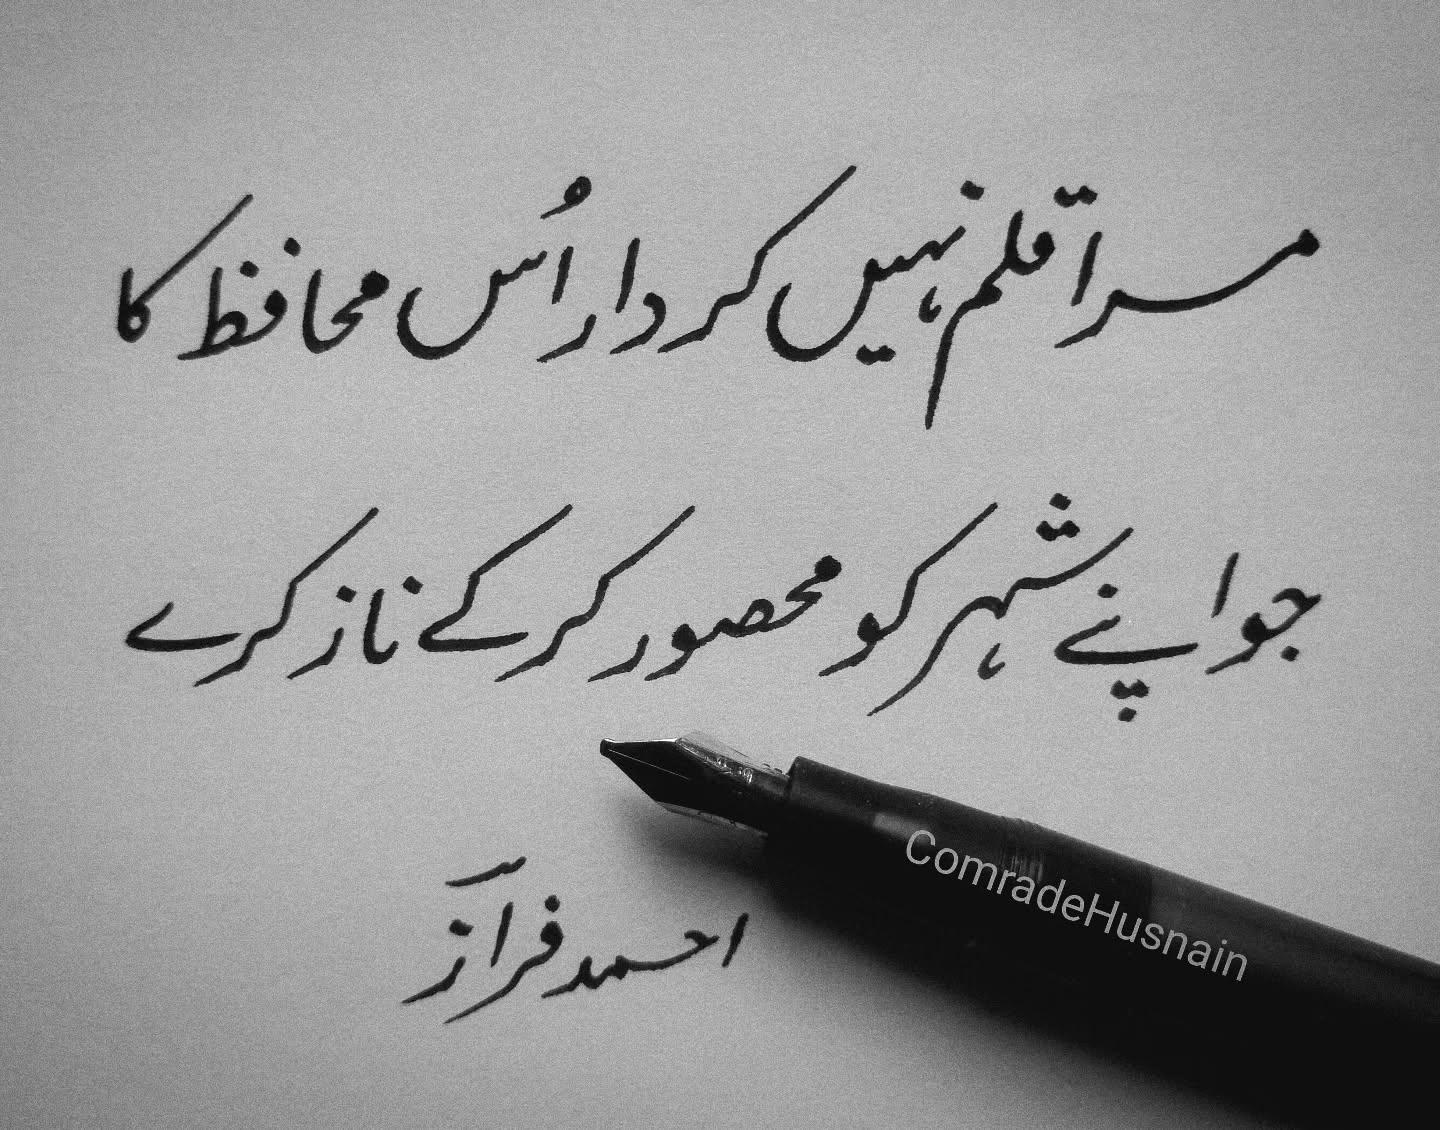 مرا قلم نہیں کردار اُس محافظ کا
جو اپنے شہر کو محصور کر کے ناز کرے
احمد فراز
ComradeHusnain